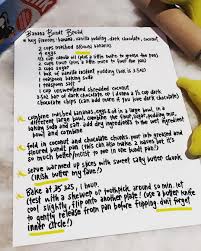 Banana Bundt Bread
* key flavors: banana, vanilla pudding, dark chocolate, coconut
2 cups mashed bananas
4 eggs
1/2 cup canola oil (plus a little butter to grease the pan)
2 cups flour (plus a little more to flour the pan)
2 cups sugar
1 box of vanilla instant pudding (but its 3.4oz)
2 teaspoons baking soda
1 teaspoon salt
1 cup coconut
bar of dark chocolate chopped or down to a 1/2 cup dark
chocolate chips (can add more if you love dark chocolate)
combine mashed bananas, eggs, oil in a large bowl. in a
different large bowl combine the flour, sugar, pudding mix,
baking soda and salt. add dry ingredients to the wet ingredient
bowl and combine
fold in coconut and chocolate chunks. pour into greased and
floured bundt pan (this can also make 2 loaves but it's
so much better/moist to me in the bundt pan)
serve warmed up slices with sweet salty butter chunk
(Irish butter my fave!)
Bake at 325, 1 hour.
(test with a skewer or toothpick around 50 min. let
cool slightly, flip onto another plate! (use a butter knife
to gently release from pan before flipping don't forget
inner circle!)